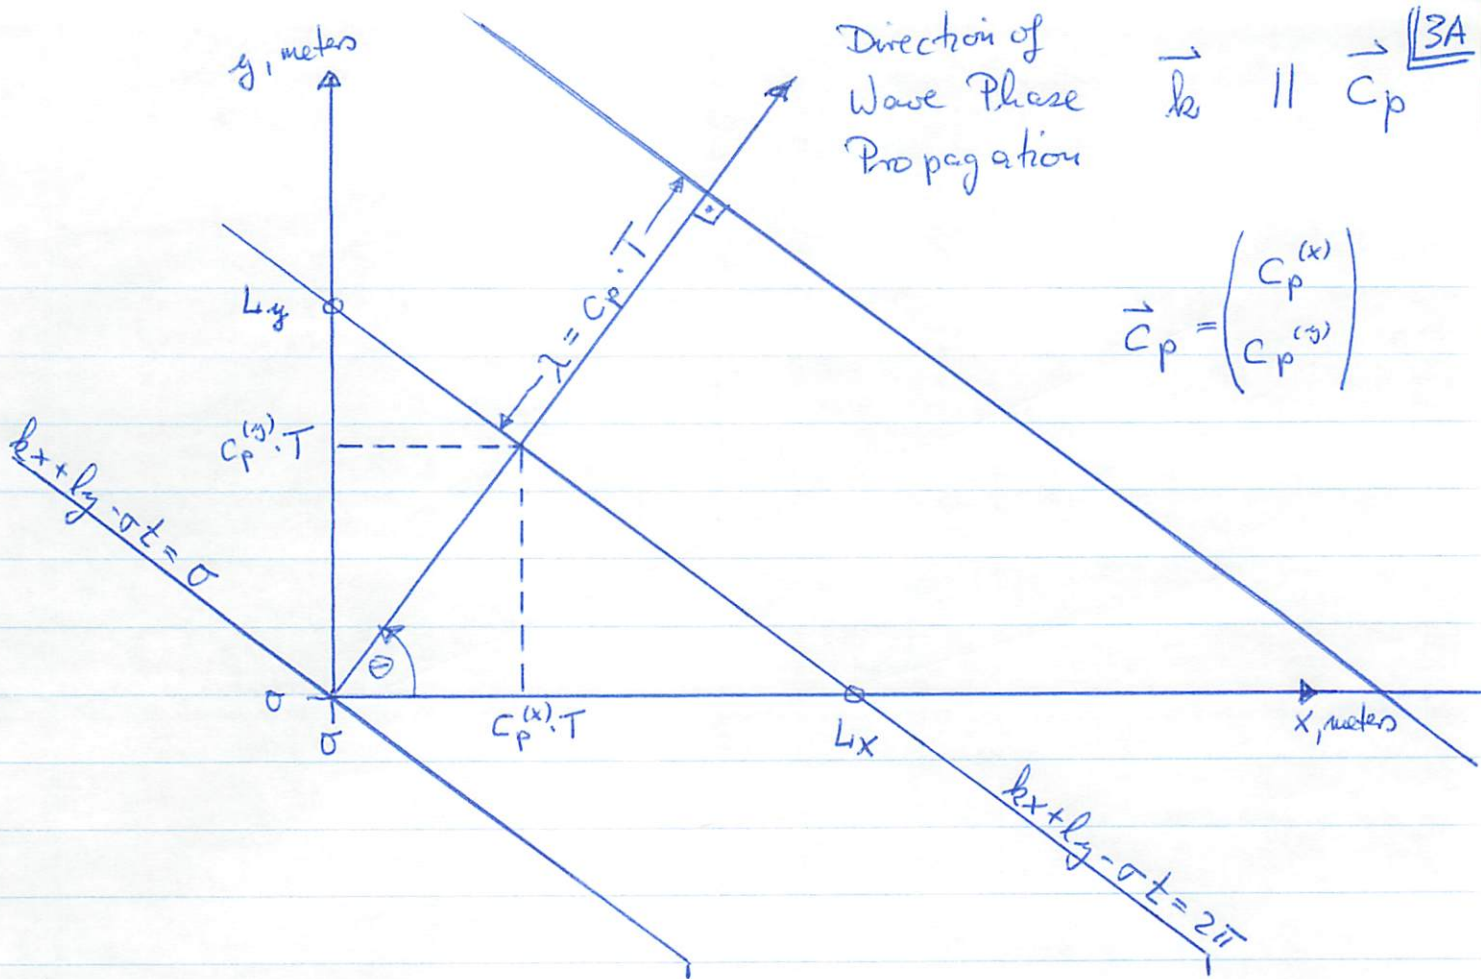 3A
y, meters
Direction of
Wave Phase
Propagation
k⃗ || C⃗p
λ = Cp · T
C⃗p = (Cp^(x) Cp^(y))
Ly
Cp^(y) · T
kx+ly-σt=0
θ
0
0
Cp^(x) · T
Lx
x, meters
kx+ly-σt=2π